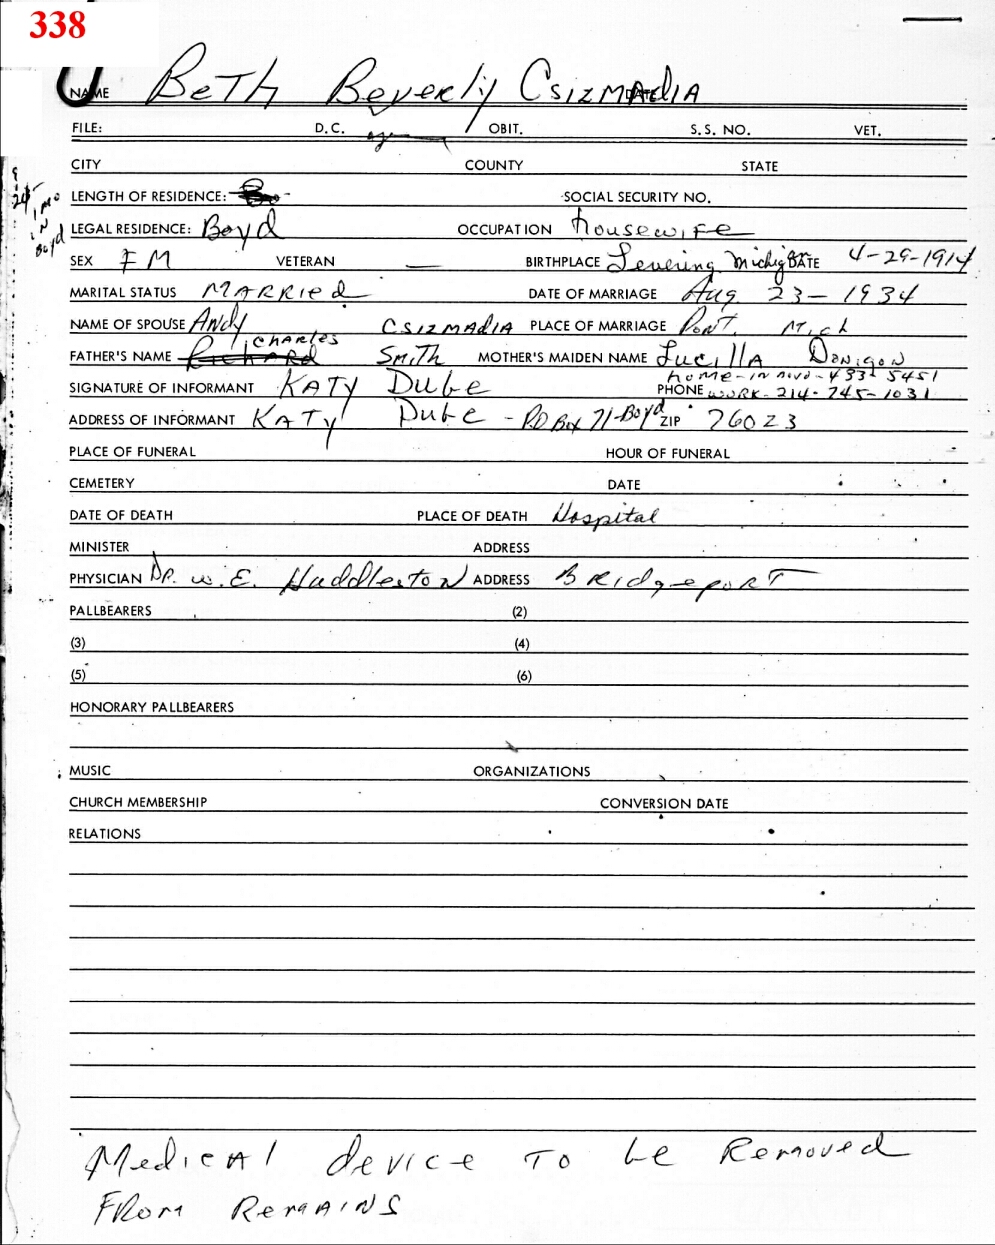 338
NAME Beth Beverly Csizmadia DATE
FILE: D.C. OBIT. S.S. NO. VET.
CITY COUNTY STATE
LENGTH OF RESIDENCE: SOCIAL SECURITY NO.
1 mo in Boyd
LEGAL RESIDENCE: Boyd OCCUPATION housewife
SEX FM VETERAN — BIRTHPLACE Levering Michig DATE 4-29-1914
MARITAL STATUS MARRied DATE OF MARRIAGE Aug 23-1934
NAME OF SPOUSE Andy Csizmadia PLACE OF MARRIAGE Pont. Mich
FATHER'S NAME Richard Charles Smith MOTHER'S MAIDEN NAME Lucilla Donigon
home- - 433-5451
SIGNATURE OF INFORMANT KATY Dube PHONE WORK - 214-745-1031
ADDRESS OF INFORMANT KATY Dube - P.O Box 71-Boyd ZIP 76023
PLACE OF FUNERAL HOUR OF FUNERAL
CEMETERY DATE
DATE OF DEATH PLACE OF DEATH Hospital
MINISTER ADDRESS
PHYSICIAN DR. W.E. Huddleston ADDRESS BRidgepoRT
PALLBEARERS (2)
(3) (4)
(5) (6)
HONORARY PALLBEARERS
MUSIC ORGANIZATIONS
CHURCH MEMBERSHIP CONVERSION DATE
RELATIONS
Medical device To be Removed
From Remains